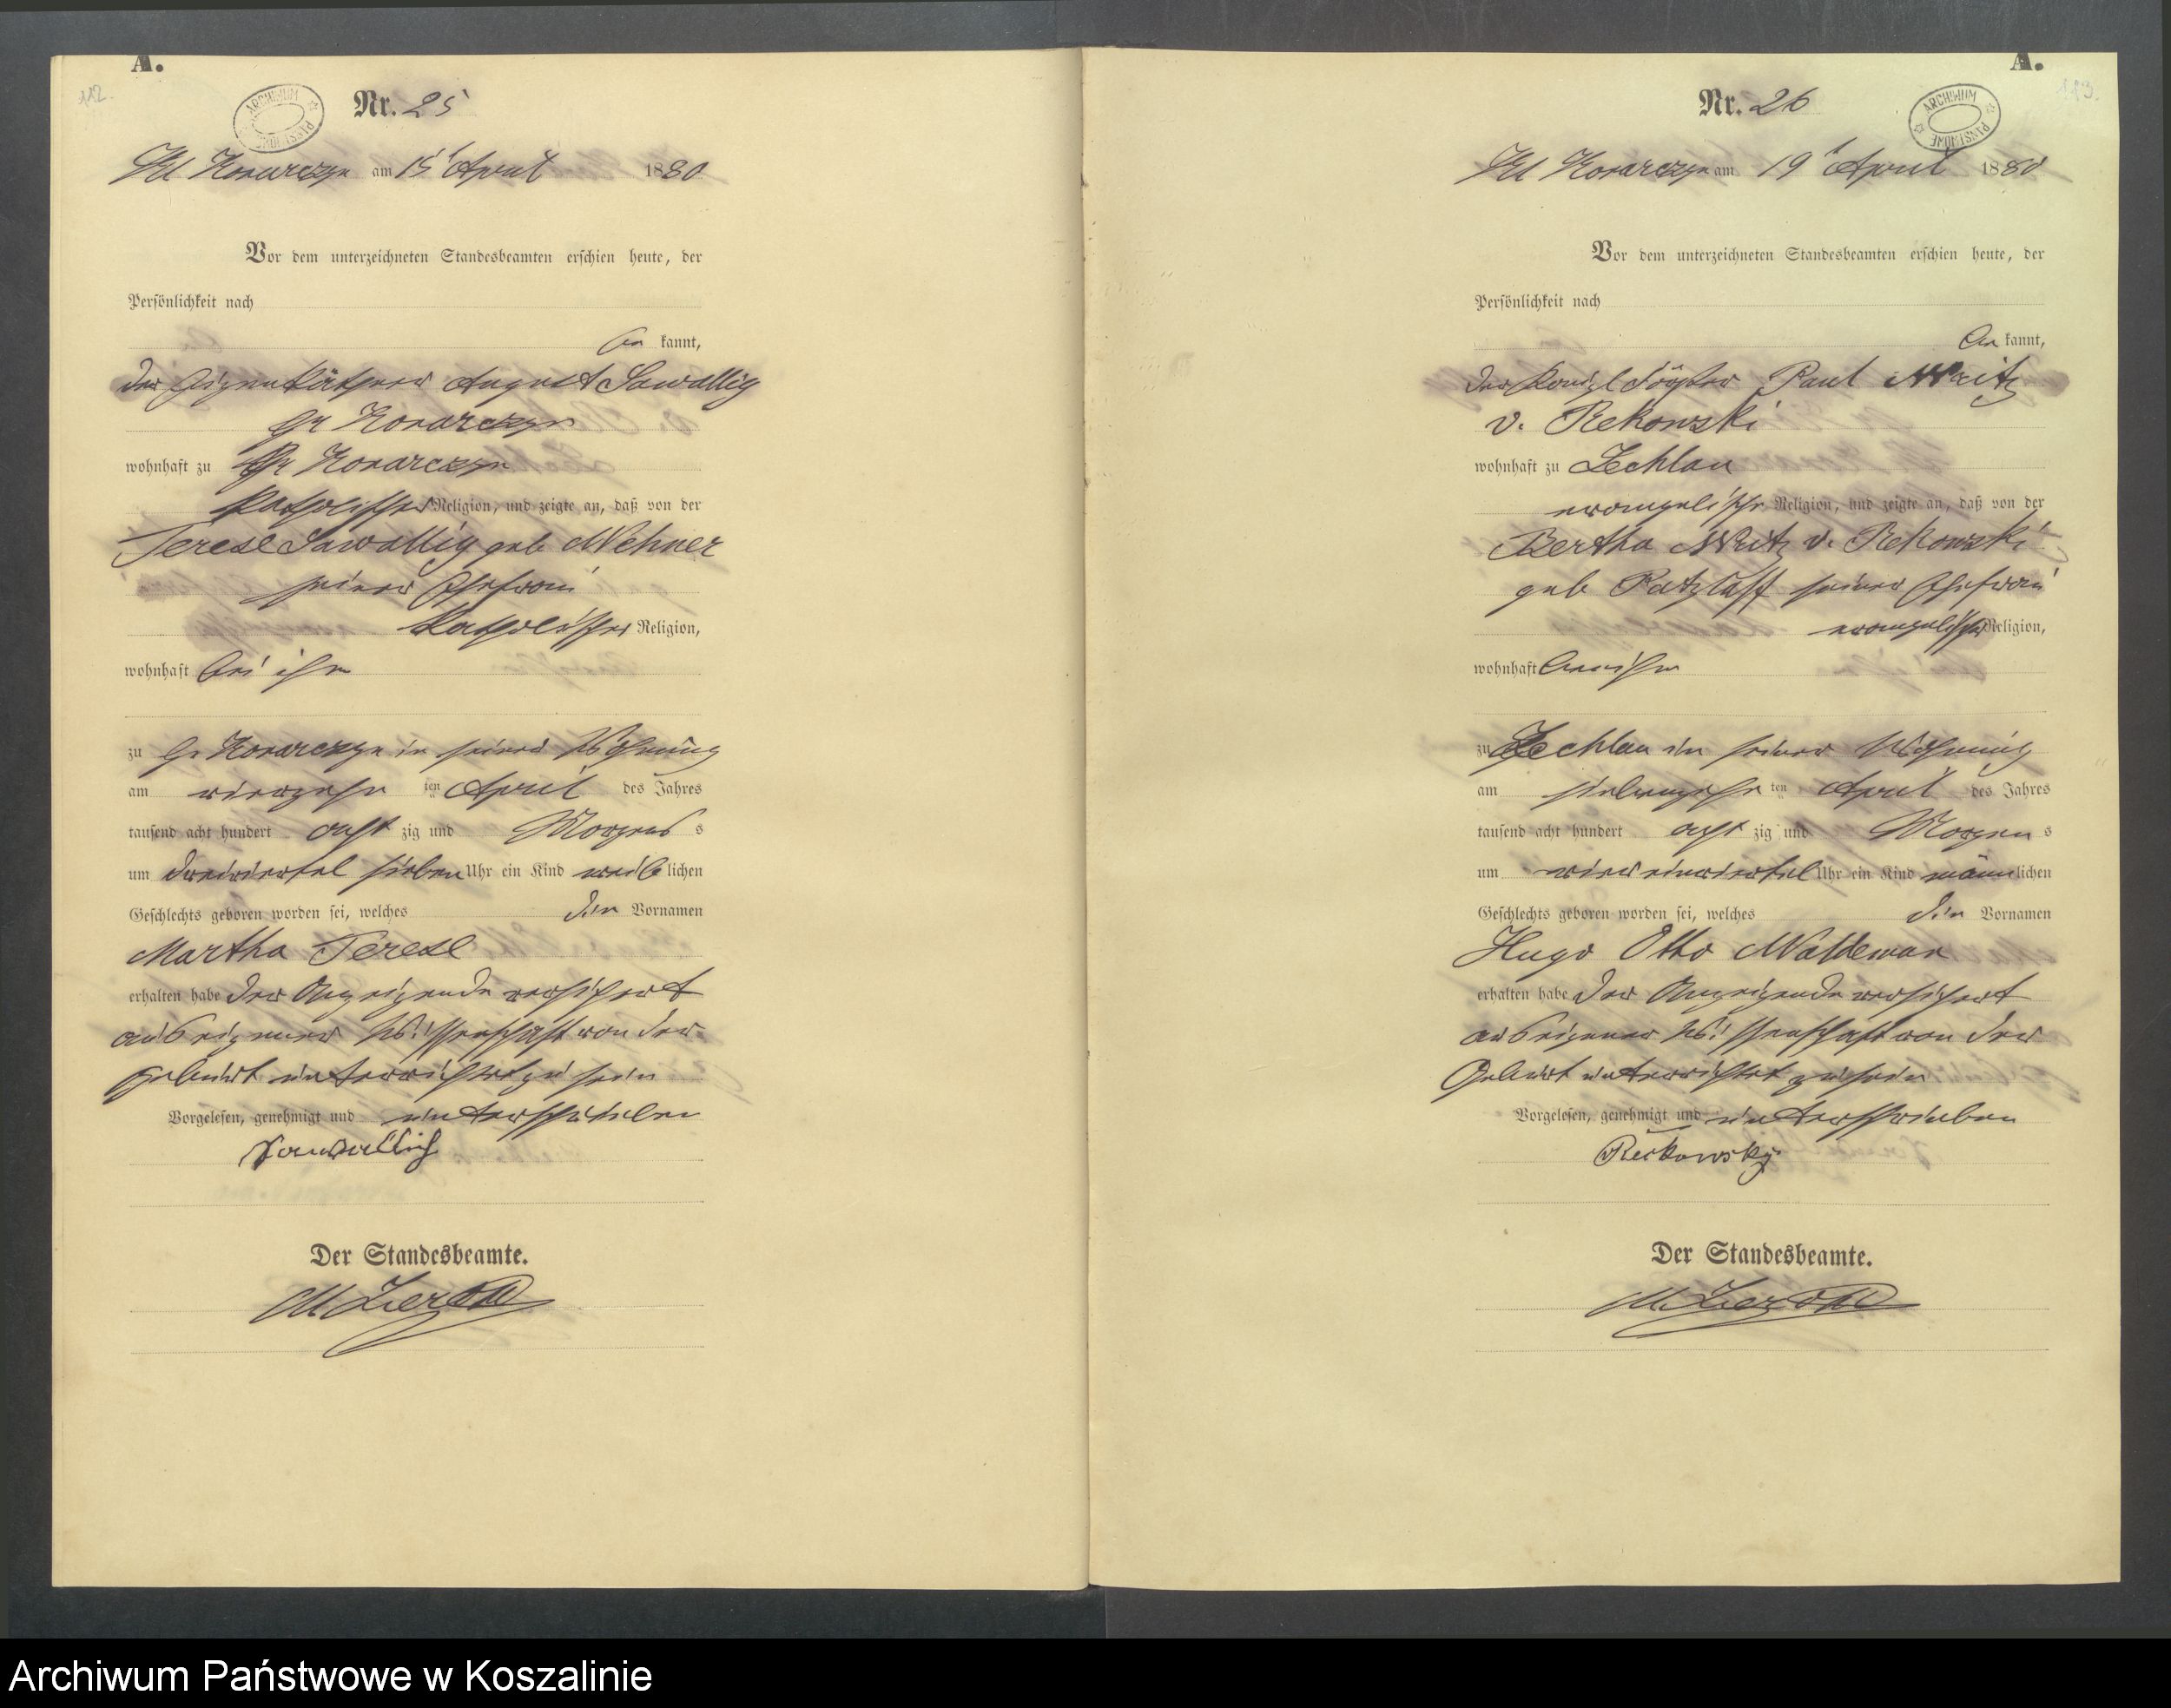 A.
112.
ARCHIWUM PAŃSTWOWE
Nr. 25
Kl Konarczyn am 15t April 1880
Vor dem unterzeichneten Standesbeamten erschien heute, der
Persönlichkeit nach
be kannt,
der Eigenthümer August Sawallig
Gr Konarczyn
wohnhaft zu Gr Konarczyn
katholischer Religion, und zeigte an, daß von der
Terese Sawallig geb
seiner Ehefrau
katholischer Religion,
wohnhaft bei ihm
zu Gr Konarczyn in seiner Wohnung
am vierzehn ten April des Jahres
tausend acht hundert acht zig und Morgens s
um dreiviertel sieben Uhr ein Kind weib lichen
Geschlechts geboren worden sei, welches die Vornamen
Martha Terese
erhalten habe Der Anzeigende versichert
aus eigener Wissenschaft von der
Geburt unterrichtet zu sein
Vorgelesen, genehmigt und unterschrieben
Sawallich
Der Standesbeamte.
A.
113.
ARCHIWUM PAŃSTWOWE
Nr. 26
Kl Konarczyn am 19t April 1880
Vor dem unterzeichneten Standesbeamten erschien heute, der
Persönlichkeit nach
be kannt,
der Königl Förster Paul
v. Rekowski
wohnhaft zu Zechlau
evangelischer Religion, und zeigte an, daß von der
Bertha v. Rekowski
geb Patzlaff seiner Ehefrau
evangelischer Religion,
wohnhaft bei ihm
zu Zechlau in seiner Wohnung
am siebenzehn ten April des Jahres
tausend acht hundert acht zig und Morgen s
um vier einviertel Uhr ein Kind männ lichen
Geschlechts geboren worden sei, welches die Vornamen
Hugo Otto Waldemar
erhalten habe Der Anzeigende versichert
aus eigener Wissenschaft von der
Geburt unterrichtet zu sein
Vorgelesen, genehmigt und unterschrieben
Reikowsky
Der Standesbeamte.
Archiwum Państwowe w Koszalinie